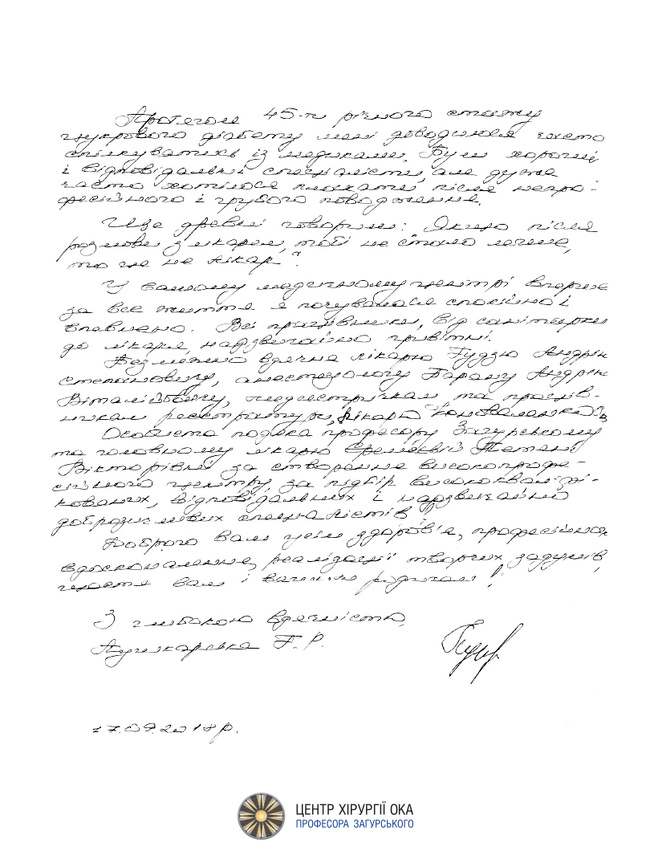 Протягом 45-ти річного стажу
цукрового діабету мені доводилося часто
спілкуватись із медиками. Були хороші
і відповідальні спеціалісти, але дуже
часто хотілося плакати після непро-
фесійного і грубого поводження.
Ще древні говорили: "Якщо після
розмови з лікарем, тобі не стало легше,
то це не лікар".
У вашому медичному центрі вперше
за все життя я почувалася спокійно і
впевнено. Всі працівники, від санітарки
до лікаря, надзвичайно привітні.
Безмежно вдячна лікарю Гудзю Андрію
Степановичу, анестезіологу Барану Андрію
Віталійовичу, медсестричкам, та праців-
никам реєстратури, лікарю
Особиста подяка професору Загурському
та головному лікарю Тетяні
Вікторівні за створення високопрофе-
сійного центру, за підбір висококваліфі-
кованих, відповідальних і надзвичайно
доброзичливих спеціалістів
Доброго вам усім здоров'я, професійного
вдосконалення, реалізації творчих задумів,
щастя вам і вашим рідним!
З глибокою вдячністю,
Г. Р.
17.09.2018р.
ЦЕНТР ХІРУРГІЇ ОКА
ПРОФЕСОРА ЗАГУРСЬКОГО